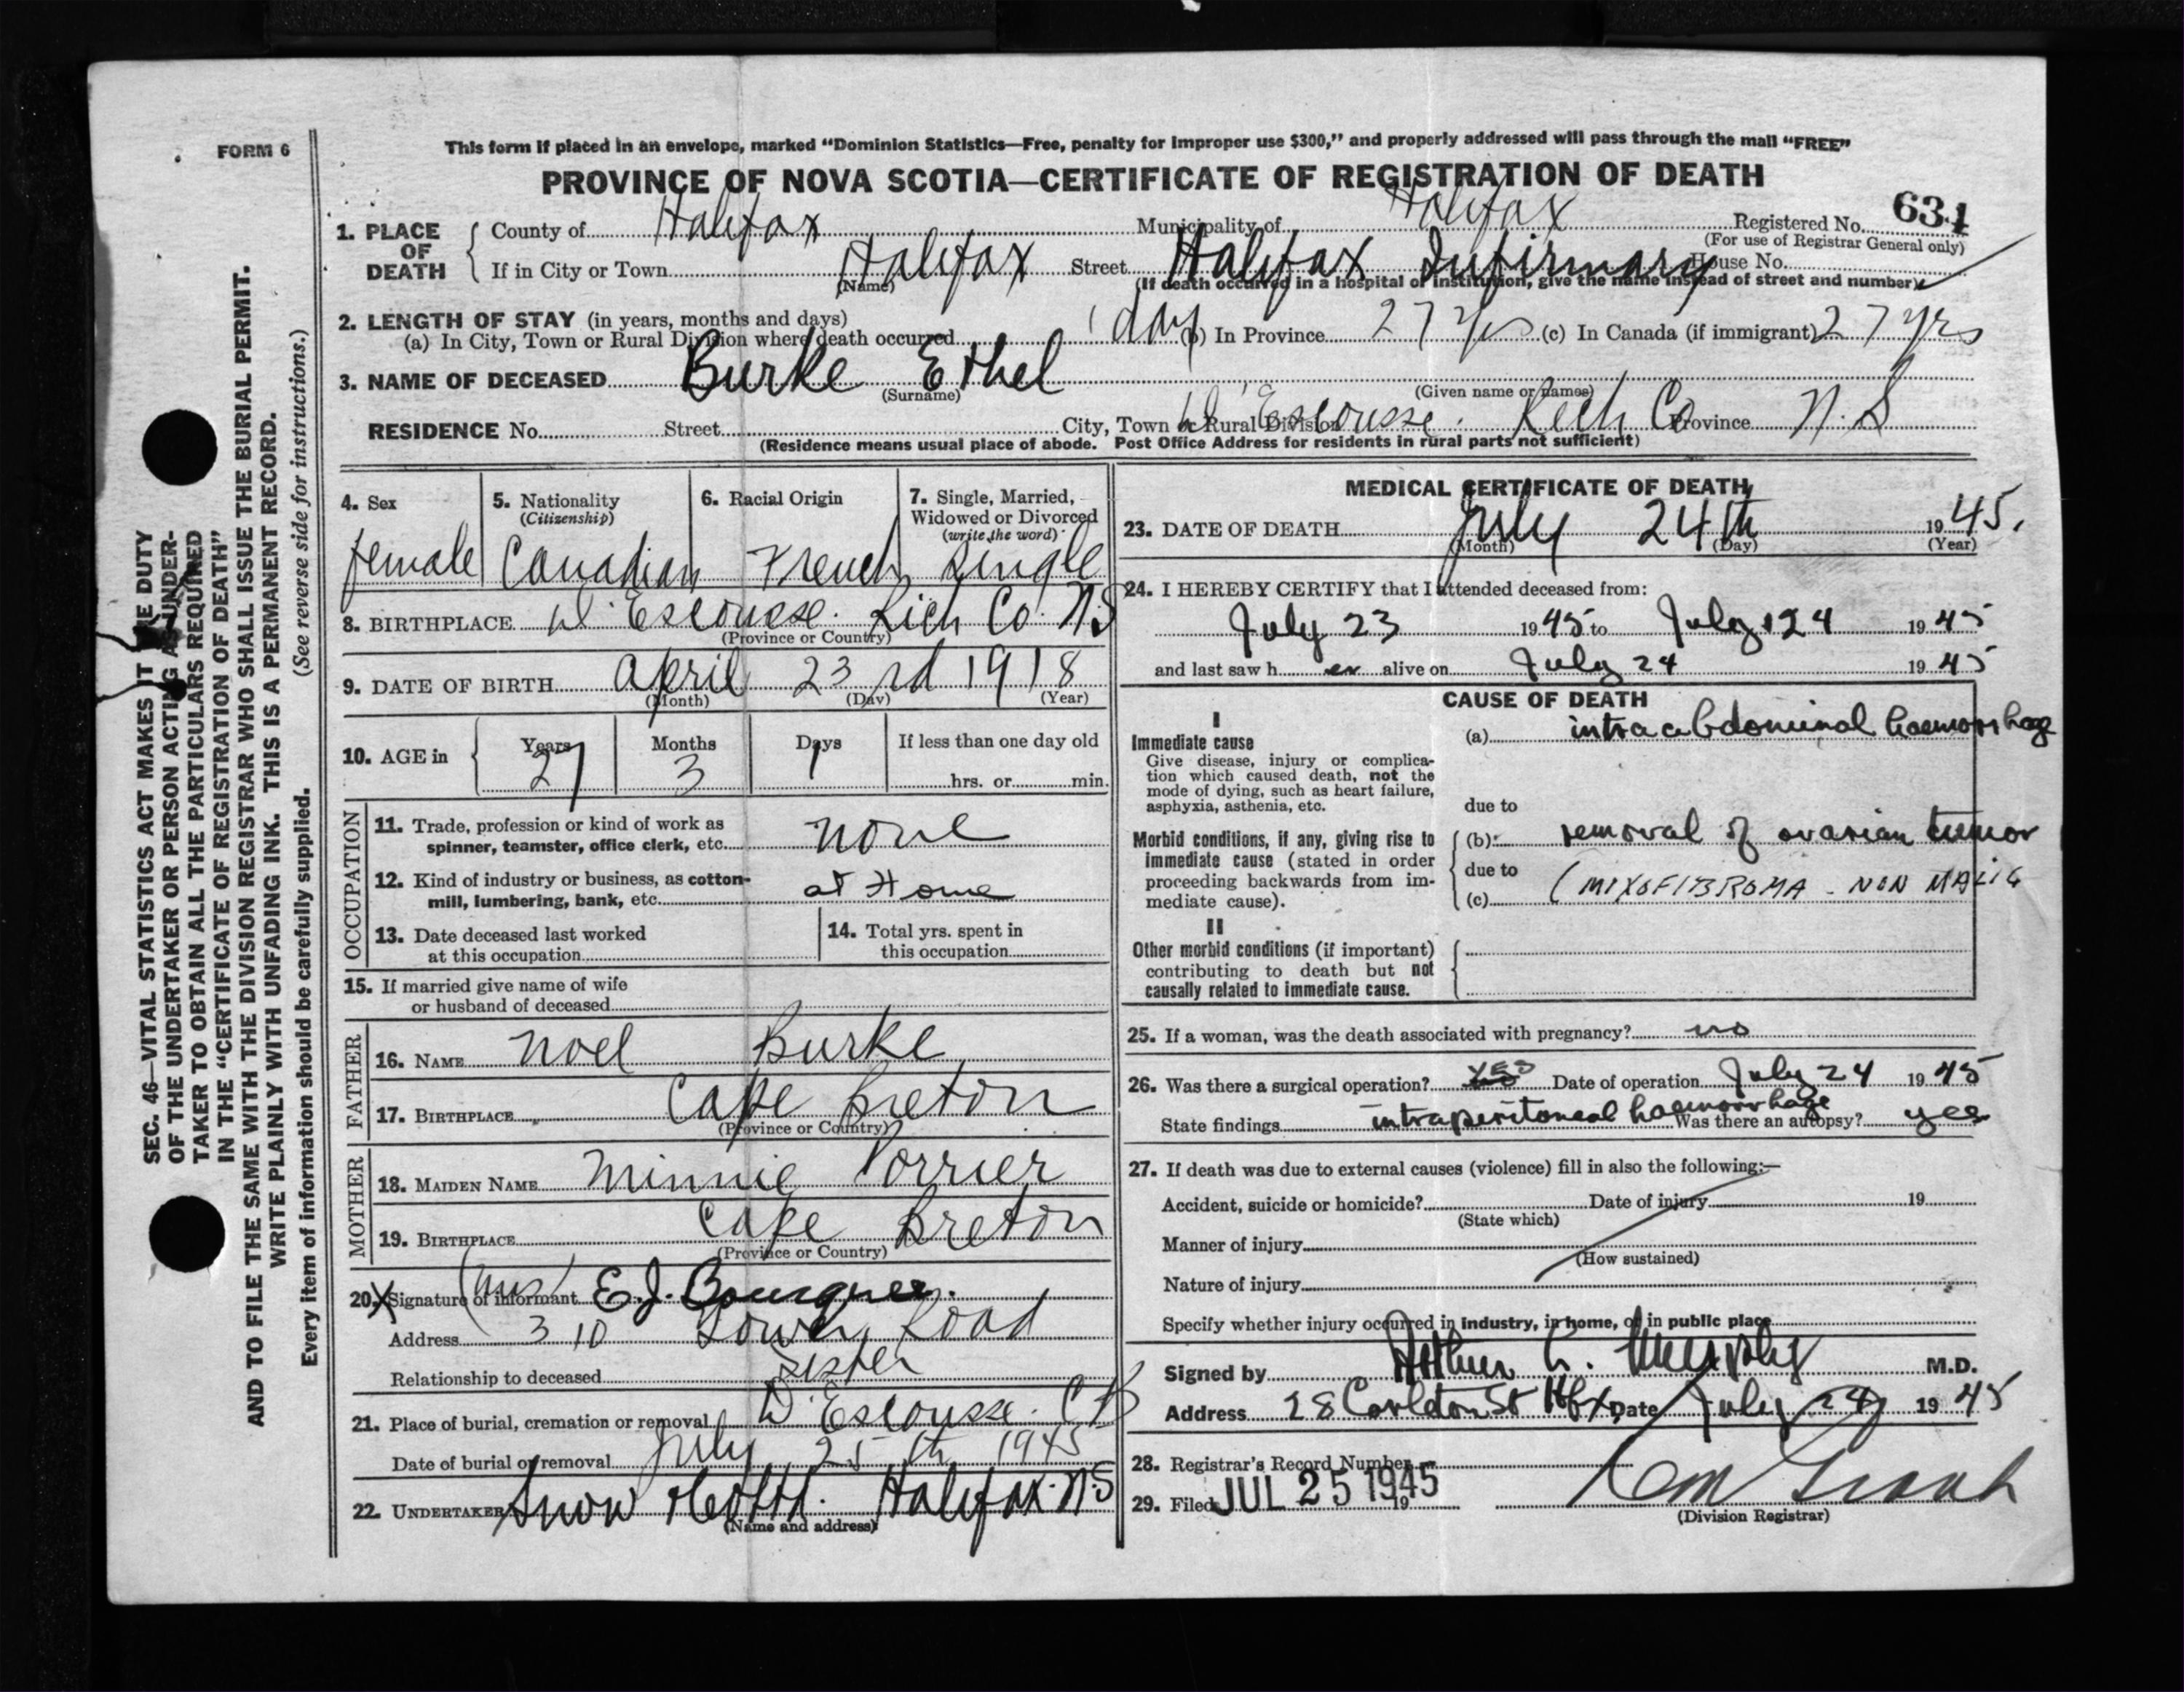 FORM 6
This form if placed in an envelope, marked “Dominion Statistics—Free, penalty for improper use $300,” and properly addressed will pass through the mail “FREE”
PROVINCE OF NOVA SCOTIA—CERTIFICATE OF REGISTRATION OF DEATH
1. PLACE OF DEATH
County of Halifax Municipality of Halifax Registered No. 631
(For use of Registrar General only)
If in City or Town Halifax Street Halifax Infirmary House No.
(Name) (If death occurred in a hospital or institution, give the name instead of street and number)
2. LENGTH OF STAY (in years, months and days)
(a) In City, Town or Rural Division where death occurred 1 day (b) In Province 27 yrs (c) In Canada (if immigrant) 27 yrs
3. NAME OF DECEASED Burke Ethel
(Surname) (Given name or names)
RESIDENCE No. Street City, Town or Rural Division D'Escousse. Rich Co Province N.S
(Residence means usual place of abode. Post Office Address for residents in rural parts not sufficient)
4. Sex female
5. Nationality (Citizenship) Canadian
6. Racial Origin French
7. Single, Married, Widowed or Divorced (write the word) Single
8. BIRTHPLACE D'Escousse. Rich Co. N.S
(Province or Country)
9. DATE OF BIRTH April 23rd 1918
(Month) (Day) (Year)
10. AGE in Years 27 Months 3 Days 1 If less than one day old
hrs. or min.
OCCUPATION
11. Trade, profession or kind of work as
spinner, teamster, office clerk, etc. none
12. Kind of industry or business, as cotton-
mill, lumbering, bank, etc. at Home
13. Date deceased last worked
at this occupation
14. Total yrs. spent in
this occupation
15. If married give name of wife
or husband of deceased
FATHER
16. NAME Noel Burke
17. BIRTHPLACE Cape Breton
(Province or Country)
MOTHER
18. MAIDEN NAME Minnie Porrier
19. BIRTHPLACE Cape Breton
(Province or Country)
20. X Signature of informant (Mrs) E.J.
Address 310 Road
Relationship to deceased Sister
21. Place of burial, cremation or removal D'Escousse. C B
Date of burial or removal July 25th 1945
22. UNDERTAKER Snow Halifax. N.S
(Name and address)
MEDICAL CERTIFICATE OF DEATH
23. DATE OF DEATH July 24th 1945.
(Month) (Day) (Year)
24. I HEREBY CERTIFY that I attended deceased from:
July 23 1945 to July 24 1945
and last saw her alive on July 24 1945
CAUSE OF DEATH
I
Immediate cause
Give disease, injury or complica-
tion which caused death, not the
mode of dying, such as heart failure,
asphyxia, asthenia, etc.
(a) intraabdominal haemorrhage
due to
Morbid conditions, if any, giving rise to
immediate cause (stated in order
proceeding backwards from im-
mediate cause).
(b) removal of ovarian tumor
due to
(c) (MIXOFIBROMA - NON MALIG
II
Other morbid conditions (if important)
contributing to death but not
causally related to immediate cause.
25. If a woman, was the death associated with pregnancy? no
26. Was there a surgical operation? YES Date of operation July 24 1945
State findings intraperitoneal haemorrhage Was there an autopsy? yes
27. If death was due to external causes (violence) fill in also the following:—
Accident, suicide or homicide? Date of injury 19
(State which)
Manner of injury
(How sustained)
Nature of injury
Specify whether injury occurred in industry, in home, or in public place
Signed by Arthur L. Murphy M.D.
Address 28 Carleton St Hfx Date July 24 1945
28. Registrar's Record Number
29. Filed JUL 25 1945 19
(Division Registrar)
SEC. 46—VITAL STATISTICS ACT MAKES IT THE DUTY
OF THE UNDERTAKER OR PERSON ACTING AS UNDER-
TAKER TO OBTAIN ALL THE PARTICULARS REQUIRED
IN THE “CERTIFICATE OF REGISTRATION OF DEATH”
AND TO FILE THE SAME WITH THE DIVISION REGISTRAR WHO SHALL ISSUE THE BURIAL PERMIT.
WRITE PLAINLY WITH UNFADING INK. THIS IS A PERMANENT RECORD.
Every item of information should be carefully supplied. (See reverse side for instructions.)